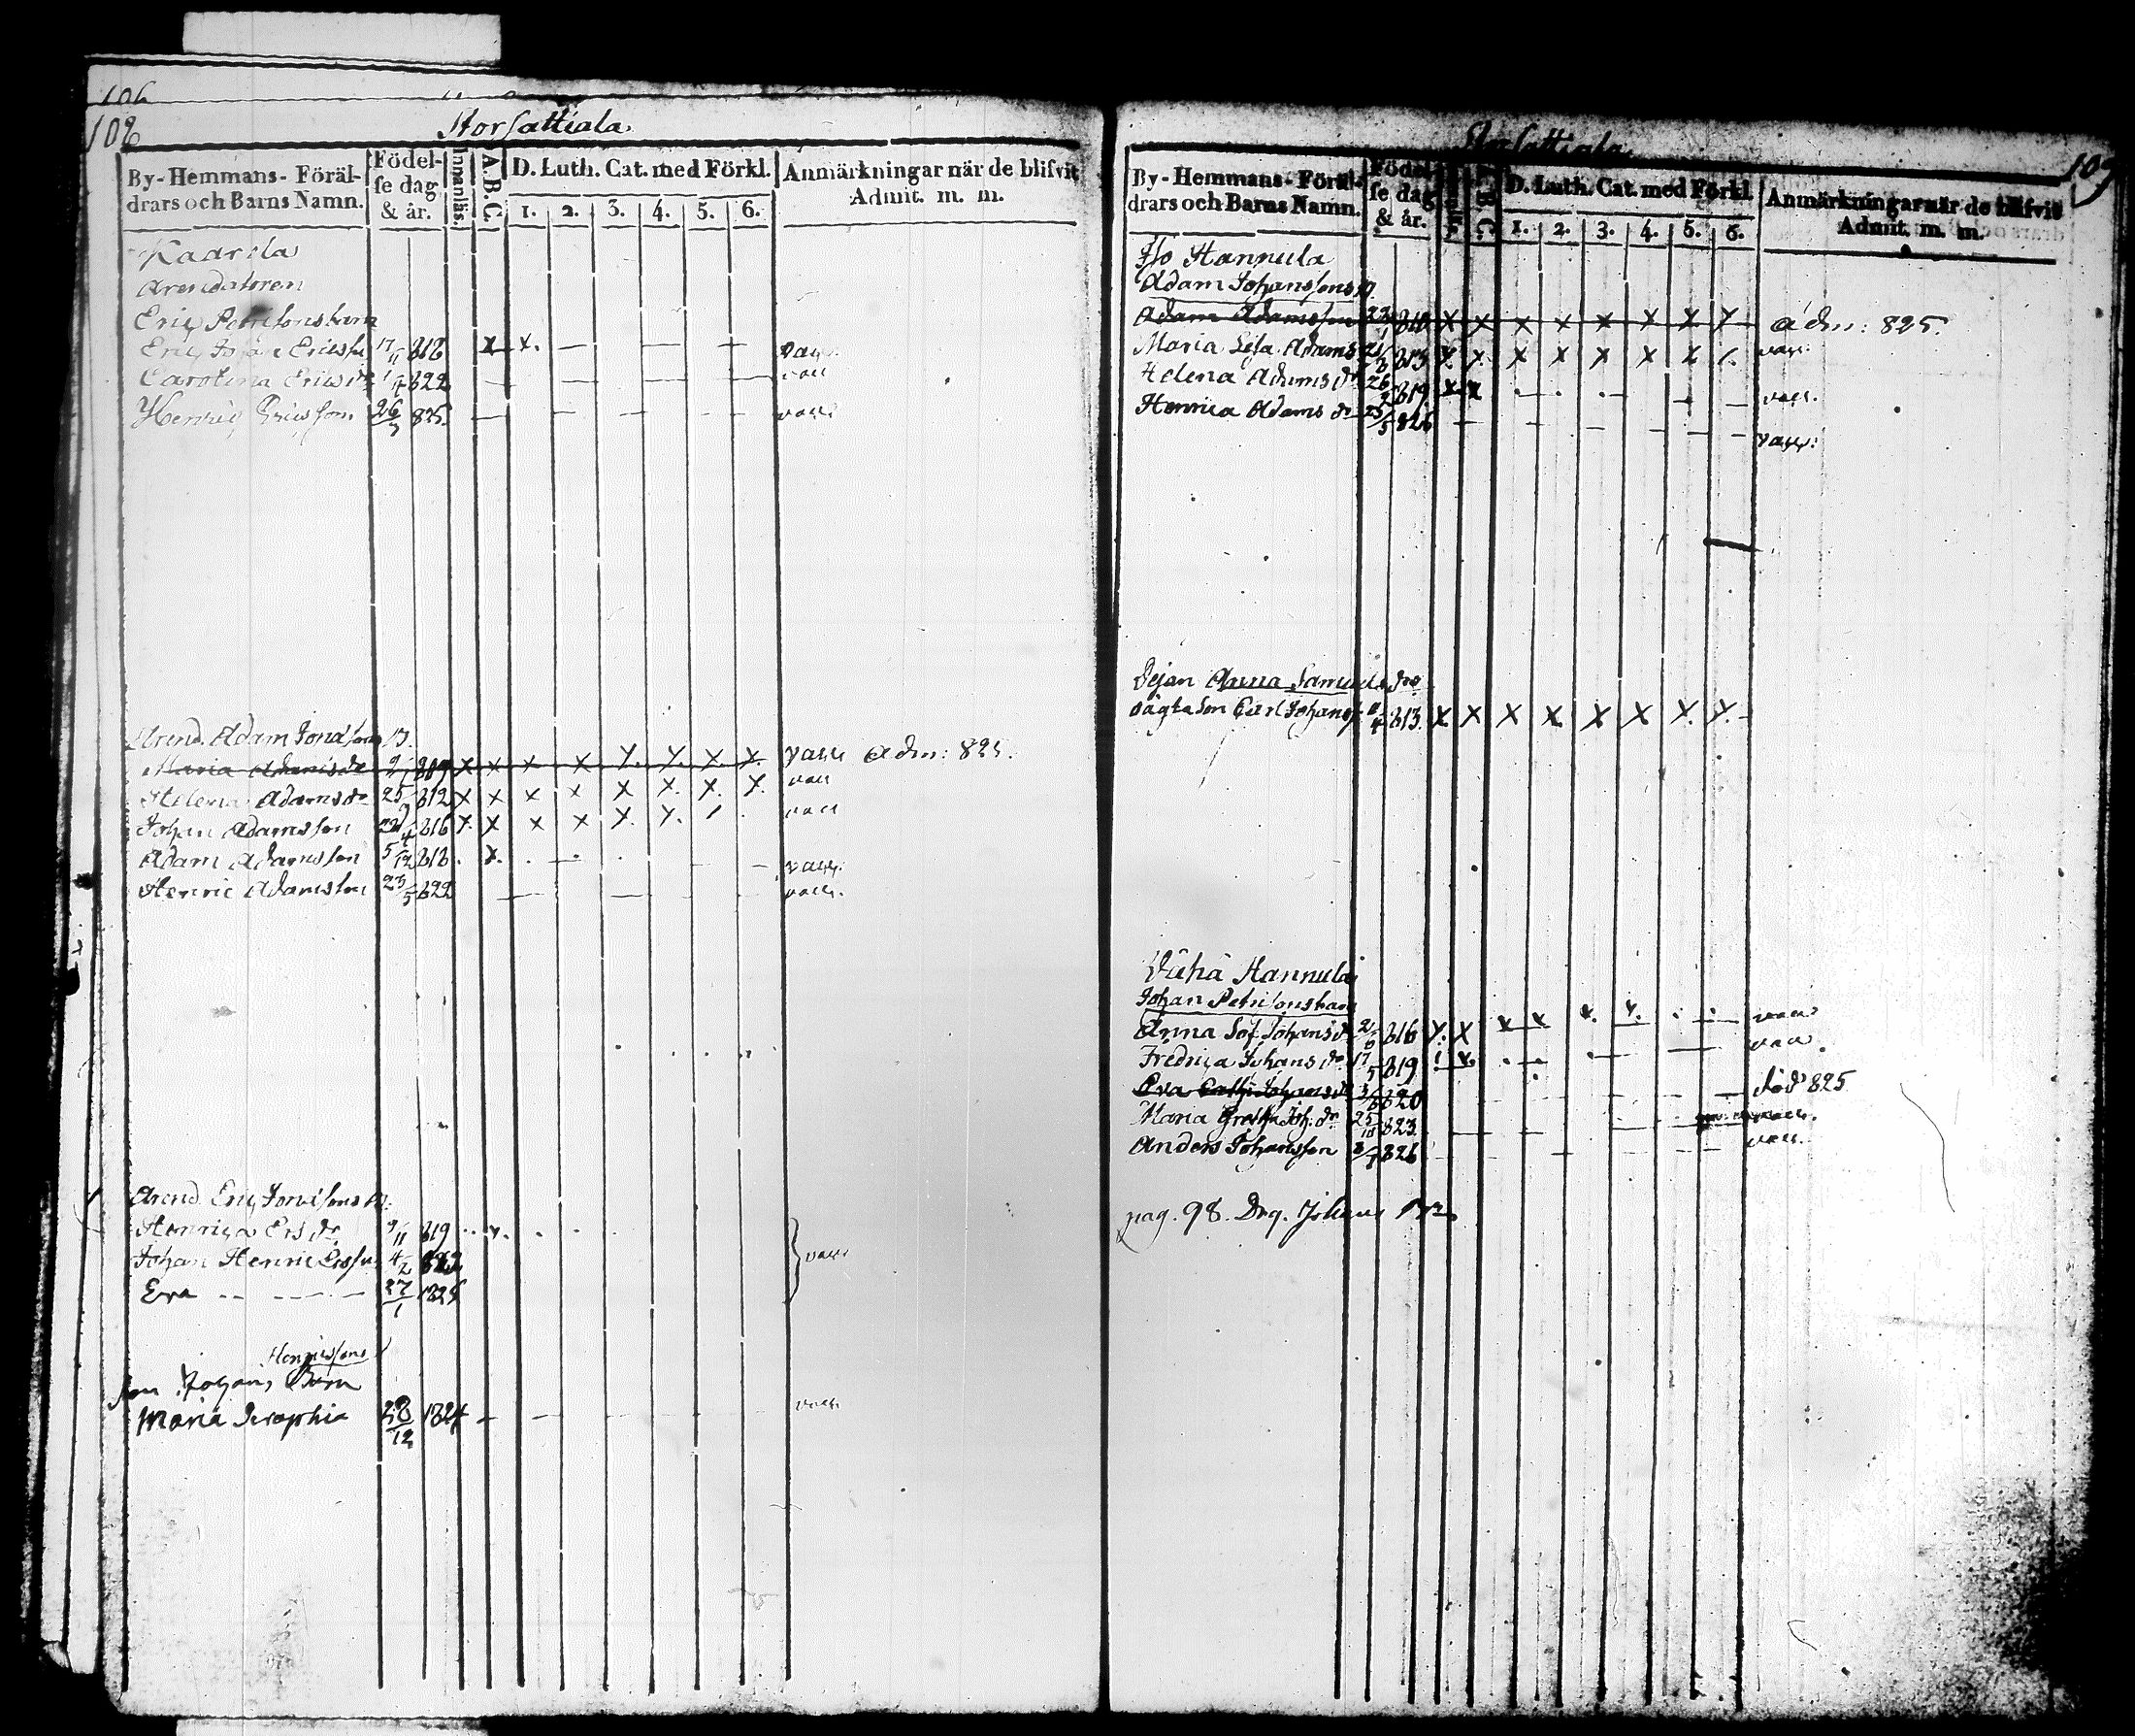 106
108
Storsattiala.
By-Hemmans-Föräl-
drars och Barns Namn.
Födel-
se dag
& år.
Innanläs.
A.B.C.
D. Luth. Cat. med Förkl.
1. 2. 3. 4. 5. 6.
Anmärkningar när de blifvit
Admit. m. m.
Kaarela
Arendatoren
Eric Petrisons barn
Eric Johan Ericsson 17/11 818 x x. — — — — vacc.
Carolina Ericsdr 822 — — — — vacc
Henric Ericsson 26/7 825. — — — — vacc
Arend. Adam Jonasons B.
Maria Adamsdr 2/1 809 x x x x x. x. x. x. vacc Adm: 825.
Helena Adamsdr 25/9 812 x x x x x x. x. x. vacc
Johan Adamsson 816 x. x x x x. x. vacc
Adam Adamsson 5/12 818 . x. vacc.
Henric Adamsson 23/5 822 — — — — vacc.
Arend. Eric
Henrica Ersdr 9/11 819
Johan Henric Ersson 4/2 822 vacc
Eva — — 27/1 1825
Henricsons
son Johans Barn
Maria Seraphia 28/12 1824 — — vacc
Storsattiala
109
By-Hemmans-Föräl-
drars och Barns Namn.
Födel-
se dag
& år.
D. Luth. Cat. med Förkl.
1. 2. 3. 4. 5. 6.
Anmärkningar när de blifvit
Admit. m. m.
Iso Hannula
Adam Johanssons B.
Adam Adamsson 810 x x x x x x x x Adm: 825.
Maria Lisa Adamsdr 813 x. x. x x x x x x. vacc.
Helena Adamsdr 26/2 819 x x vacc.
Henrica Adamsdr 25/5 826 — — — — vacc.
Pejan Anna Samuelsdrs
oägta son Carl Johansson 813. x x x x x x x. x.
Vähä Hannula
Johan Petrisons barn
Anna Sof. Johansdr 816 x. x x x x. x. vacc
Fredrica Johansdr 17/5 819 vacc
Eva Cath. Johansdr 820 — död 825
Maria Greta Joh. dr 25/10 823 — — — vacc.
Anders Johansson 826 — — — vacc.
pag. 98. Drg. Johans